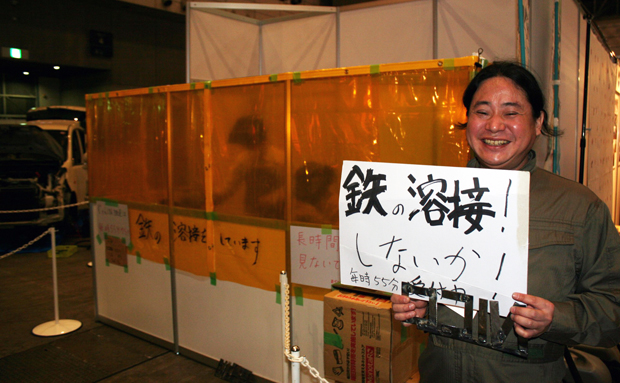 鉄の溶接!
しないか!
毎時55分
鉄の溶接をしています
長時間
見ないで